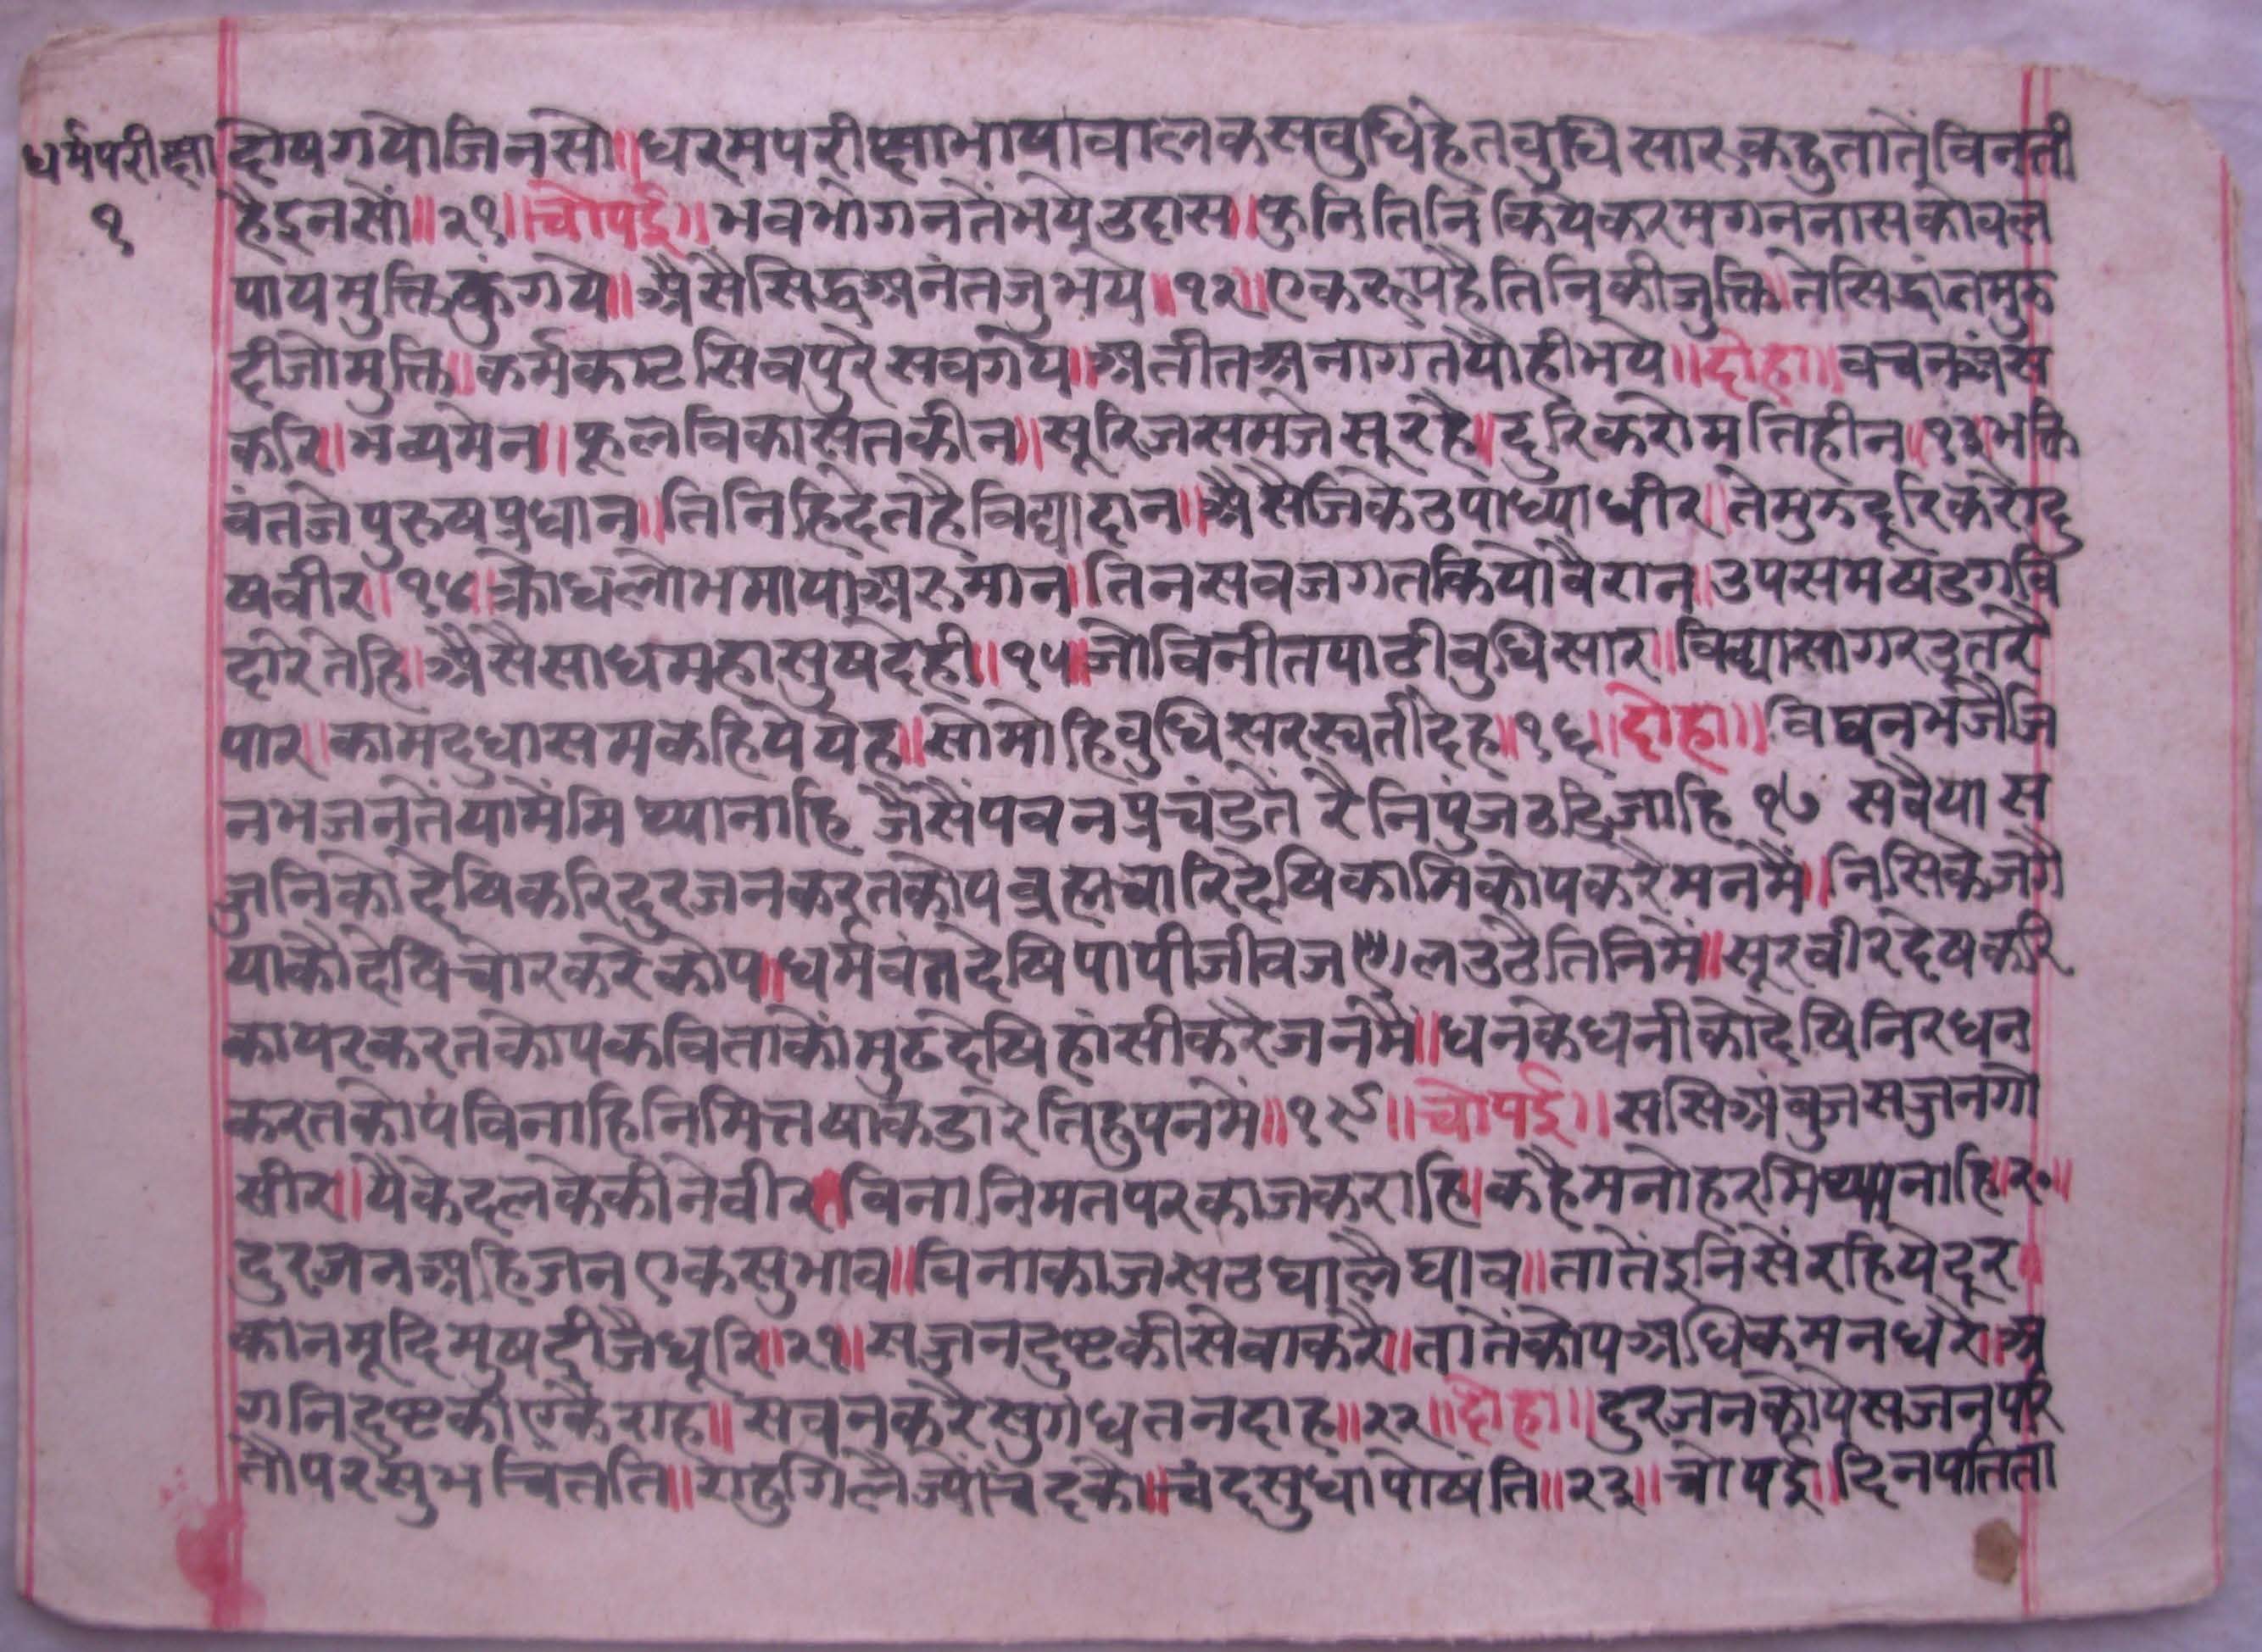 धर्मपरीक्षा
१
दोषगयोजिनसो॥धरमपरीक्षाभाषावालकसवुधिहेतवुधिसारकहुतातेंविनती
हैइनसों॥२१॥चोपई॥भवभोगनतेंभये्उदास॥फुनितिनिकियेकरमगननासकोवल
पायमुक्तिकुंगये॥अैसैसिद्धअनंतजुभये॥१२॥एकरूपहैतिनिकीजुक्ति॥तेसिद्धांतमुरु
दीजोमुक्ति॥कर्मकाष्टसिवपुरेसवगये॥अतीतअनागतयौहीभये॥दोहा॥वचनअंस
करि॥भव्यमेन॥फूलविकासतकीन॥सूरिजसमजेसूरहै॥दुरिकरोमतिहीन॥१३॥भक्ति
वंतजेपुरुषप्रधान॥तिनिहिदेतहैविद्यादान॥अैसेजिकेउपाध्याधीर॥तेमुरुदूरिकरोदु
षवीर॥१४॥क्रोधलोभमायाअरुमान॥तिनसवजगतकियोवैरान॥उपसमषडगवि
दारेतेहि॥अैसैसाधमहासुषदेही॥१५॥जोविनीतपाठीवुधिसार॥विद्यासागरउतरै
पार॥कामदुधासमकहियेयेह॥सोमोहिवुधिसरस्वतीदेह॥१६॥दोहा॥विघनभजैजि
नभजनतेंयामेंमिथ्यानाहि जैसैंपवनप्रचंडतें रैनिपुंजउडिजाहि १७ सवैयास
जुनिकोदेषिकरिदुरजनकरतकोपव्रह्मचारिदेषिकामिकोपकरेमनमैं॥निसिकेजगै
याकौदेषिचोरकरेकोप॥धर्मवंतदेषिपापीजीवजलउठैतिनिमें॥सूरवीरदेषकरि
कायरकरतकोपकविताकोंमुढदेषिहांसीकरैजनमैं॥धनकेधनीकोदेषिनिरधन
करतकोपंविनाहिनिमित्तयाकेडारेतिहुपनमें॥१९॥चोपई॥ससिअंवुजसजुनगो
सीर॥येकेदलकेकीनेवीर॥विनानिमतपरकाजकराहि॥कहैमनोहरमिथ्यानाहि॥२०॥
दुरजनअहिजनएकसुभाव॥विनाकाजसठघालैघाव॥तातेंइनिसेंरहियेदूर
कानमूदिमुषदीजैधूरि॥२१॥सजुनदुष्टकीसेवाकरै॥तातेंकोपअधिकमनधरे॥अ
गनिदुष्टकीएकैराह॥सेवनकरैसुगंधतनदाह॥२२॥दोहा॥दुरजनकोपेसजनपरि
तोपरसुभचितति॥राहुगिलैज्योंचंदकौ॥चंदसुधापोषंति॥२३॥चोपई॥दिनपतिता